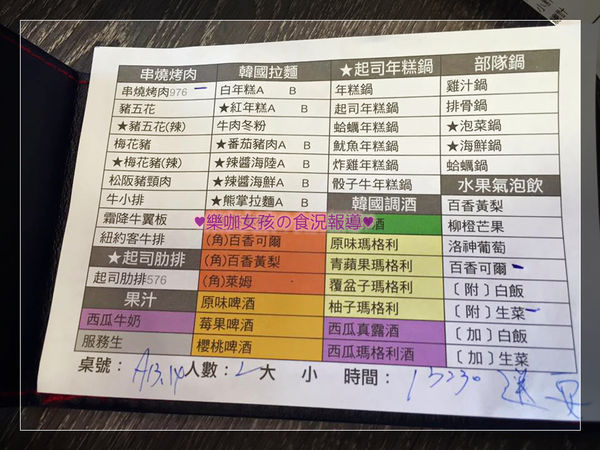 串燒烤肉 韓國拉麵 ★起司年糕鍋 部隊鍋
串燒烤肉976 白年糕A B 年糕鍋 雞汁鍋
豬五花 ★紅年糕A B 起司年糕鍋 排骨鍋
★豬五花(辣) 牛肉冬粉 蛤蠣年糕鍋 ★泡菜鍋
梅花豬 ★番茄豬肉A B 魷魚年糕鍋 ★海鮮鍋
★梅花豬(辣) ★辣醬海陸A B 炸雞年糕鍋 蛤蠣鍋
松阪豬頸肉 ★辣醬海鮮A B 骰子牛年糕鍋 水果氣泡飲
牛小排 ★熊掌拉麵A B 韓國調酒 百香黃梨
霜降牛翼板 ♥樂咖女孩の食況報導♥ 酒 柳橙芒果
紐約客牛排 (角)百香可爾 原味瑪格利 洛神葡萄
★起司肋排 (角)百香黃梨 青蘋果瑪格利 百香可爾
起司肋排576 (角)萊姆 覆盆子瑪格利 〔附〕白飯
果汁 原味啤酒 柚子瑪格利 〔附〕生菜
西瓜牛奶 莓果啤酒 西瓜真露酒 〔加〕白飯
服務生 櫻桃啤酒 西瓜瑪格利酒 〔加〕生菜
桌號： A13.14 人數： 2 大 小 時間：